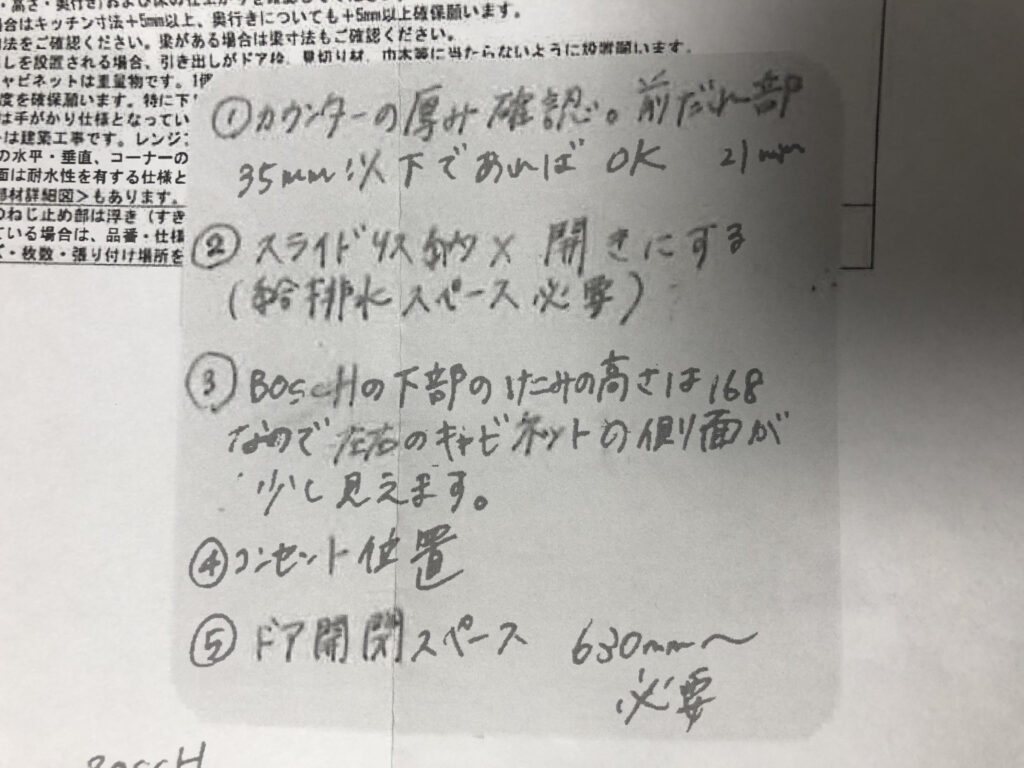 ・高さ・奥行き)および床の仕上がりを確認してください。
場合はキッチン寸法+5mm以上、奥行きについても+5mm以上確保願います。
寸法をご確認ください。梁がある場合は梁寸法もご確認ください。
しを設置される場合、引き出しがドア枠、見切り材、巾木等に当たらないように設置願います。
ャビネットは重量物です。1個
度を確保願います。特に下
は手がかり仕様となってい
は建築工事です。レンジ
の水平・垂直、コーナーの
面は耐水性を有する仕様と
部材詳細図>もあります。
のねじ止め部は浮き(すき
ている場合は、品番・仕様
・枚数・張り付け場所を
①カウンターの厚み確認。前だれ部
35mm以下であればOK 21mm
②スライド収納× 開きにする
(給排水スペース必要)
③BOSCHの下部のけこみの高さは168
なので左右のキャビネットの側面が
少し見えます。
④コンセント位置
⑤ドア開閉スペース 630mm〜
必要
BOSCH